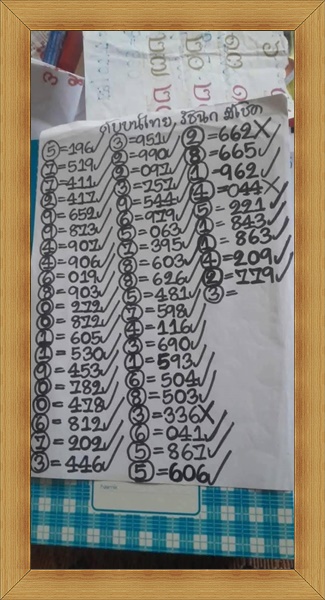 ดับบนไทย, รัชนก มีโชค
⑤=196✓
⑦=519✓
⑦=411✓
②=417✓
⑨=652✓
⑨=873✓
④=907✓
④=906✓
⑥=019✓
⑧=903✓
⓪=272✓
⓪=872✓
①=605✓
①=530✓
⑨=453✓
⓪=782✓
⓪=478✓
⑥=812✓
⑦=202✓
③=446✓
③=951✓
②=990✓
②=097✓
③=757✓
⑨=544✓
⑥=979✓
⑤=063✓
⑦=395✓
⑧=603✓
⑧=626✓
⑤=481✓
⑦=598✓
④=116✓
③=690✓
①=593✓
⑥=504✓
⑧=503✓
③=336X
⑥=041✓
⑤=867✓
⑤=606✓
②=662X
⑧=665✓
①=962✓
④=044X
⑤=221✓
①=843✓
①=863✓
④=209✓
②=779✓
③=